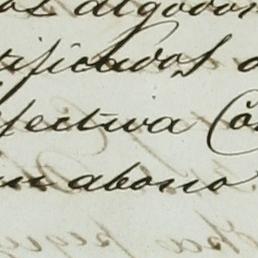 os algodoe
tificados a
fectiva Cô
um abono